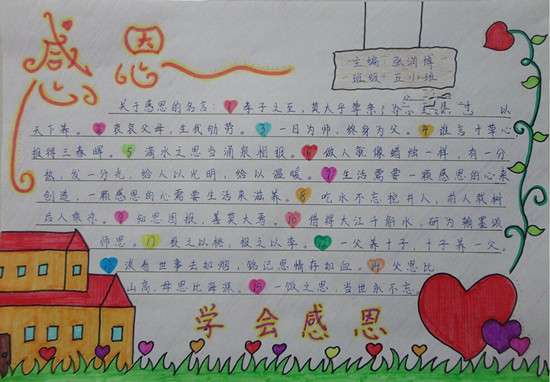 感恩
主编：张润博
班级：五小班
关于感恩的名言：1 孝子之至，莫大乎尊亲；尊亲之至，以
天下养。2 哀哀父母，生我劬劳。3 一日为师，终身为父。4 谁言寸草心，
报得三春晖。5 滴水之恩当涌泉相报。6 做人就像蜡烛一样，有一分
热，发一分光，给人以光明，给以温暖。7 生活需要一颗感恩的心来
创造，一颗感恩的心需要生活来滋养。8 吃水不忘挖井人，前人栽树
后人乘凉。9 知恩图报，善莫大焉。10 借得大江千斛水，研为翰墨颂
师恩。11 投之以桃，报之以李。12 一父养十子，十子养一父。
滚看世事去如烟，铭记恩情存如血。14 父恩比
山高，母恩比海深。15 一饭之恩，当世永不忘。
学会感恩